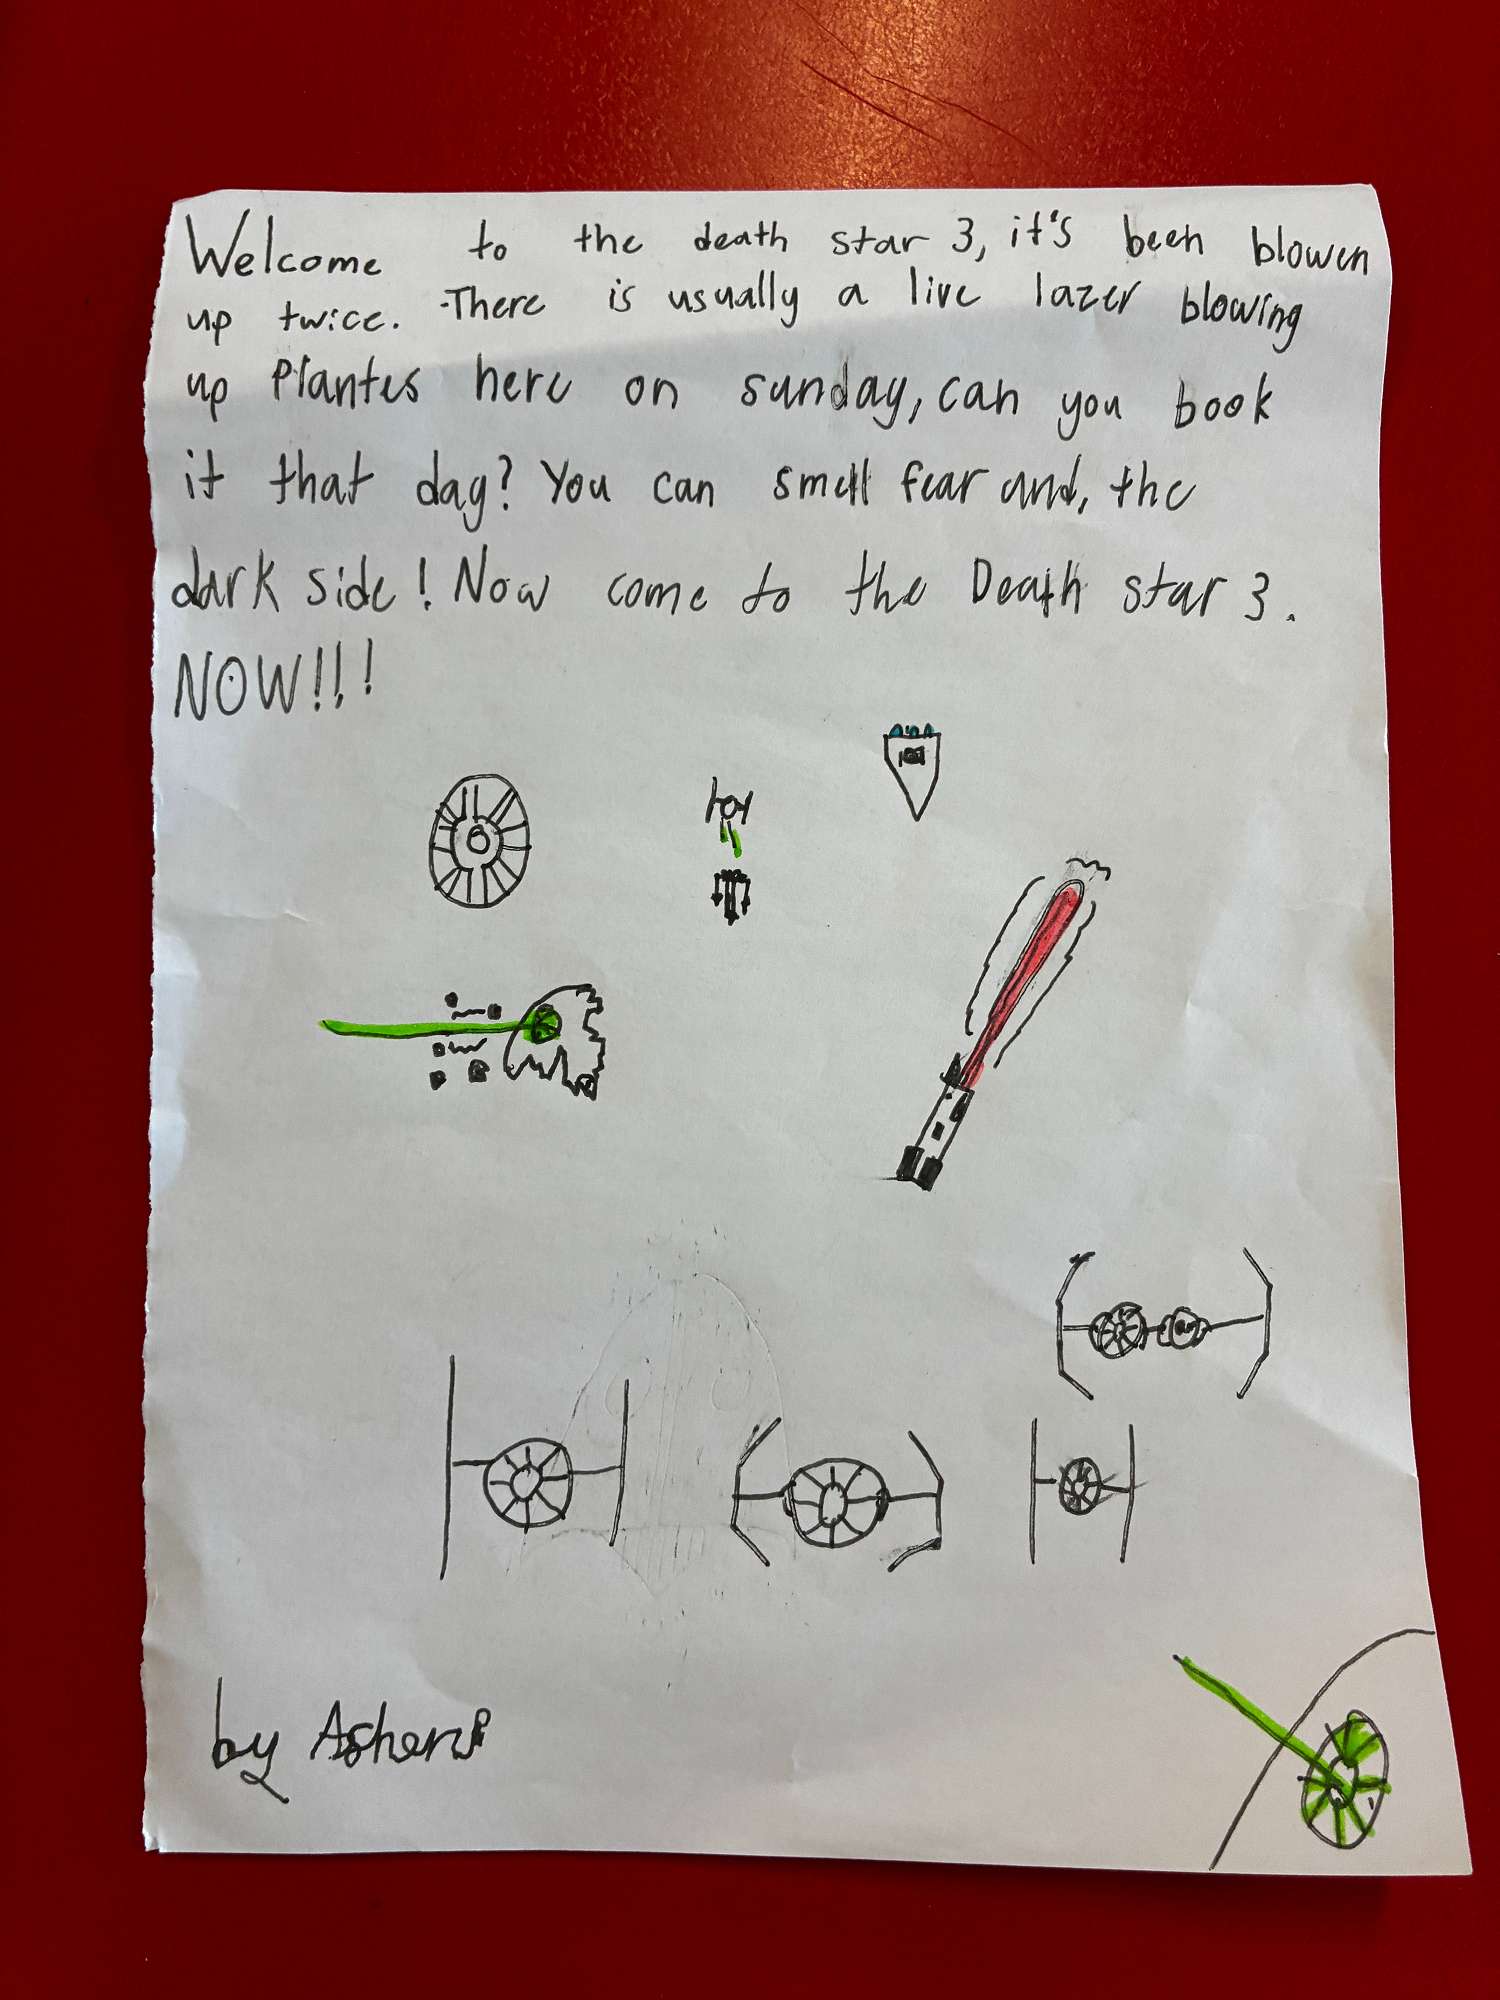 Welcome to the death star 3, it's been blowen
up twice. There is usually a live lazer blowing
up Plantes here on sunday, can you book
it that day? You can smell fear and, the
dark side! Now come to the Death star 3.
NOW!!!
by Asher